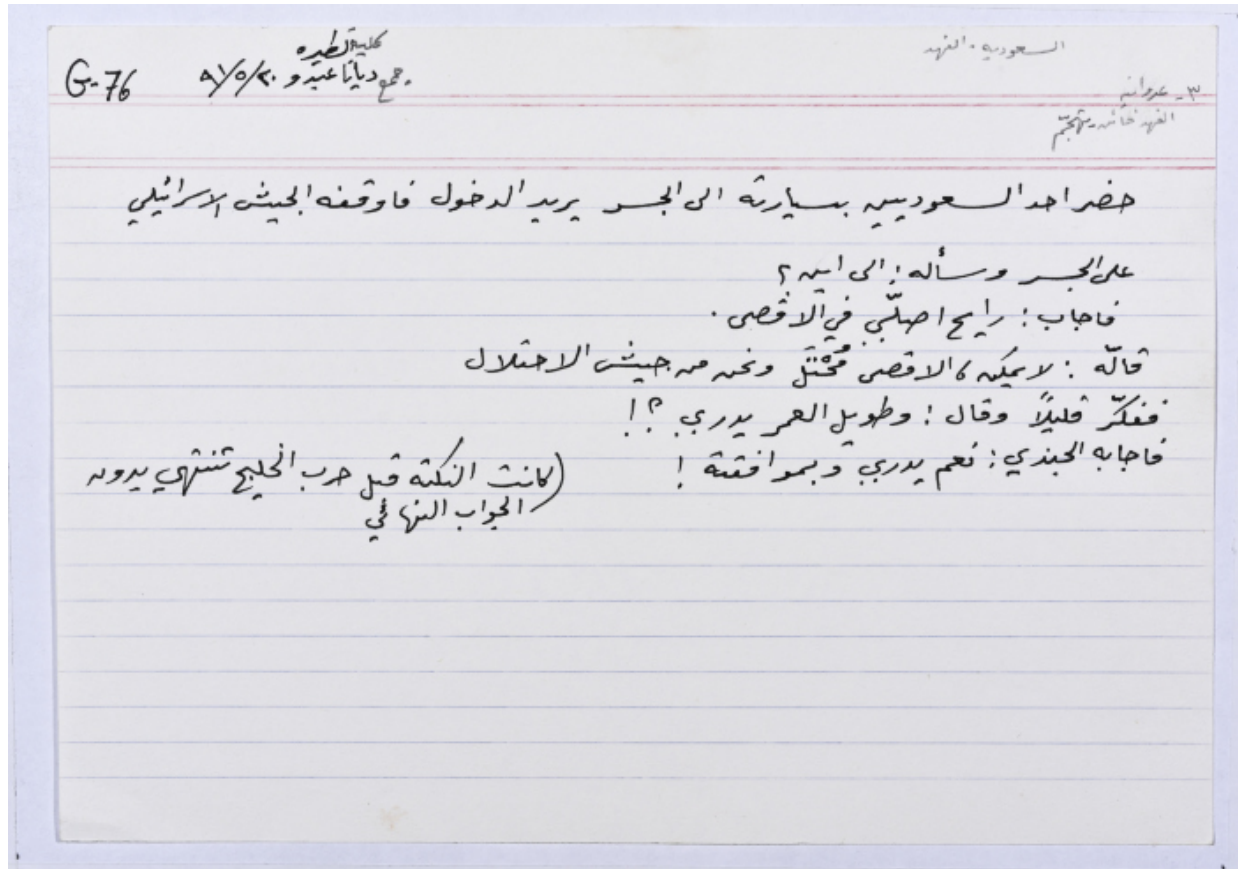 السعودية - الفهد
٣- عدوانية
الفهد خائن - تهجّم
كلية الطيره
جمع ديانا عبدو ٩١/٥/٢٠
G-76
حضر احد السعوديين بسيارته الى الجسر يريد الدخول فاوقفه الجيش الاسرائيلي
على الجسر وسأله: الى اين؟
فاجاب: رايح اصلّي في الاقصى.
قالّه: لا يمكن، الاقصى مُحْتَلّ ونحن من جيش الاحتلال
ففكّر قليلاً وقال: وطويل العمر يدري؟!
فاجابه الجندي: نعم يدري وبموافقته!
(كانت النكته قبل حرب الخليج تنتهي بدون
الجواب النهائي